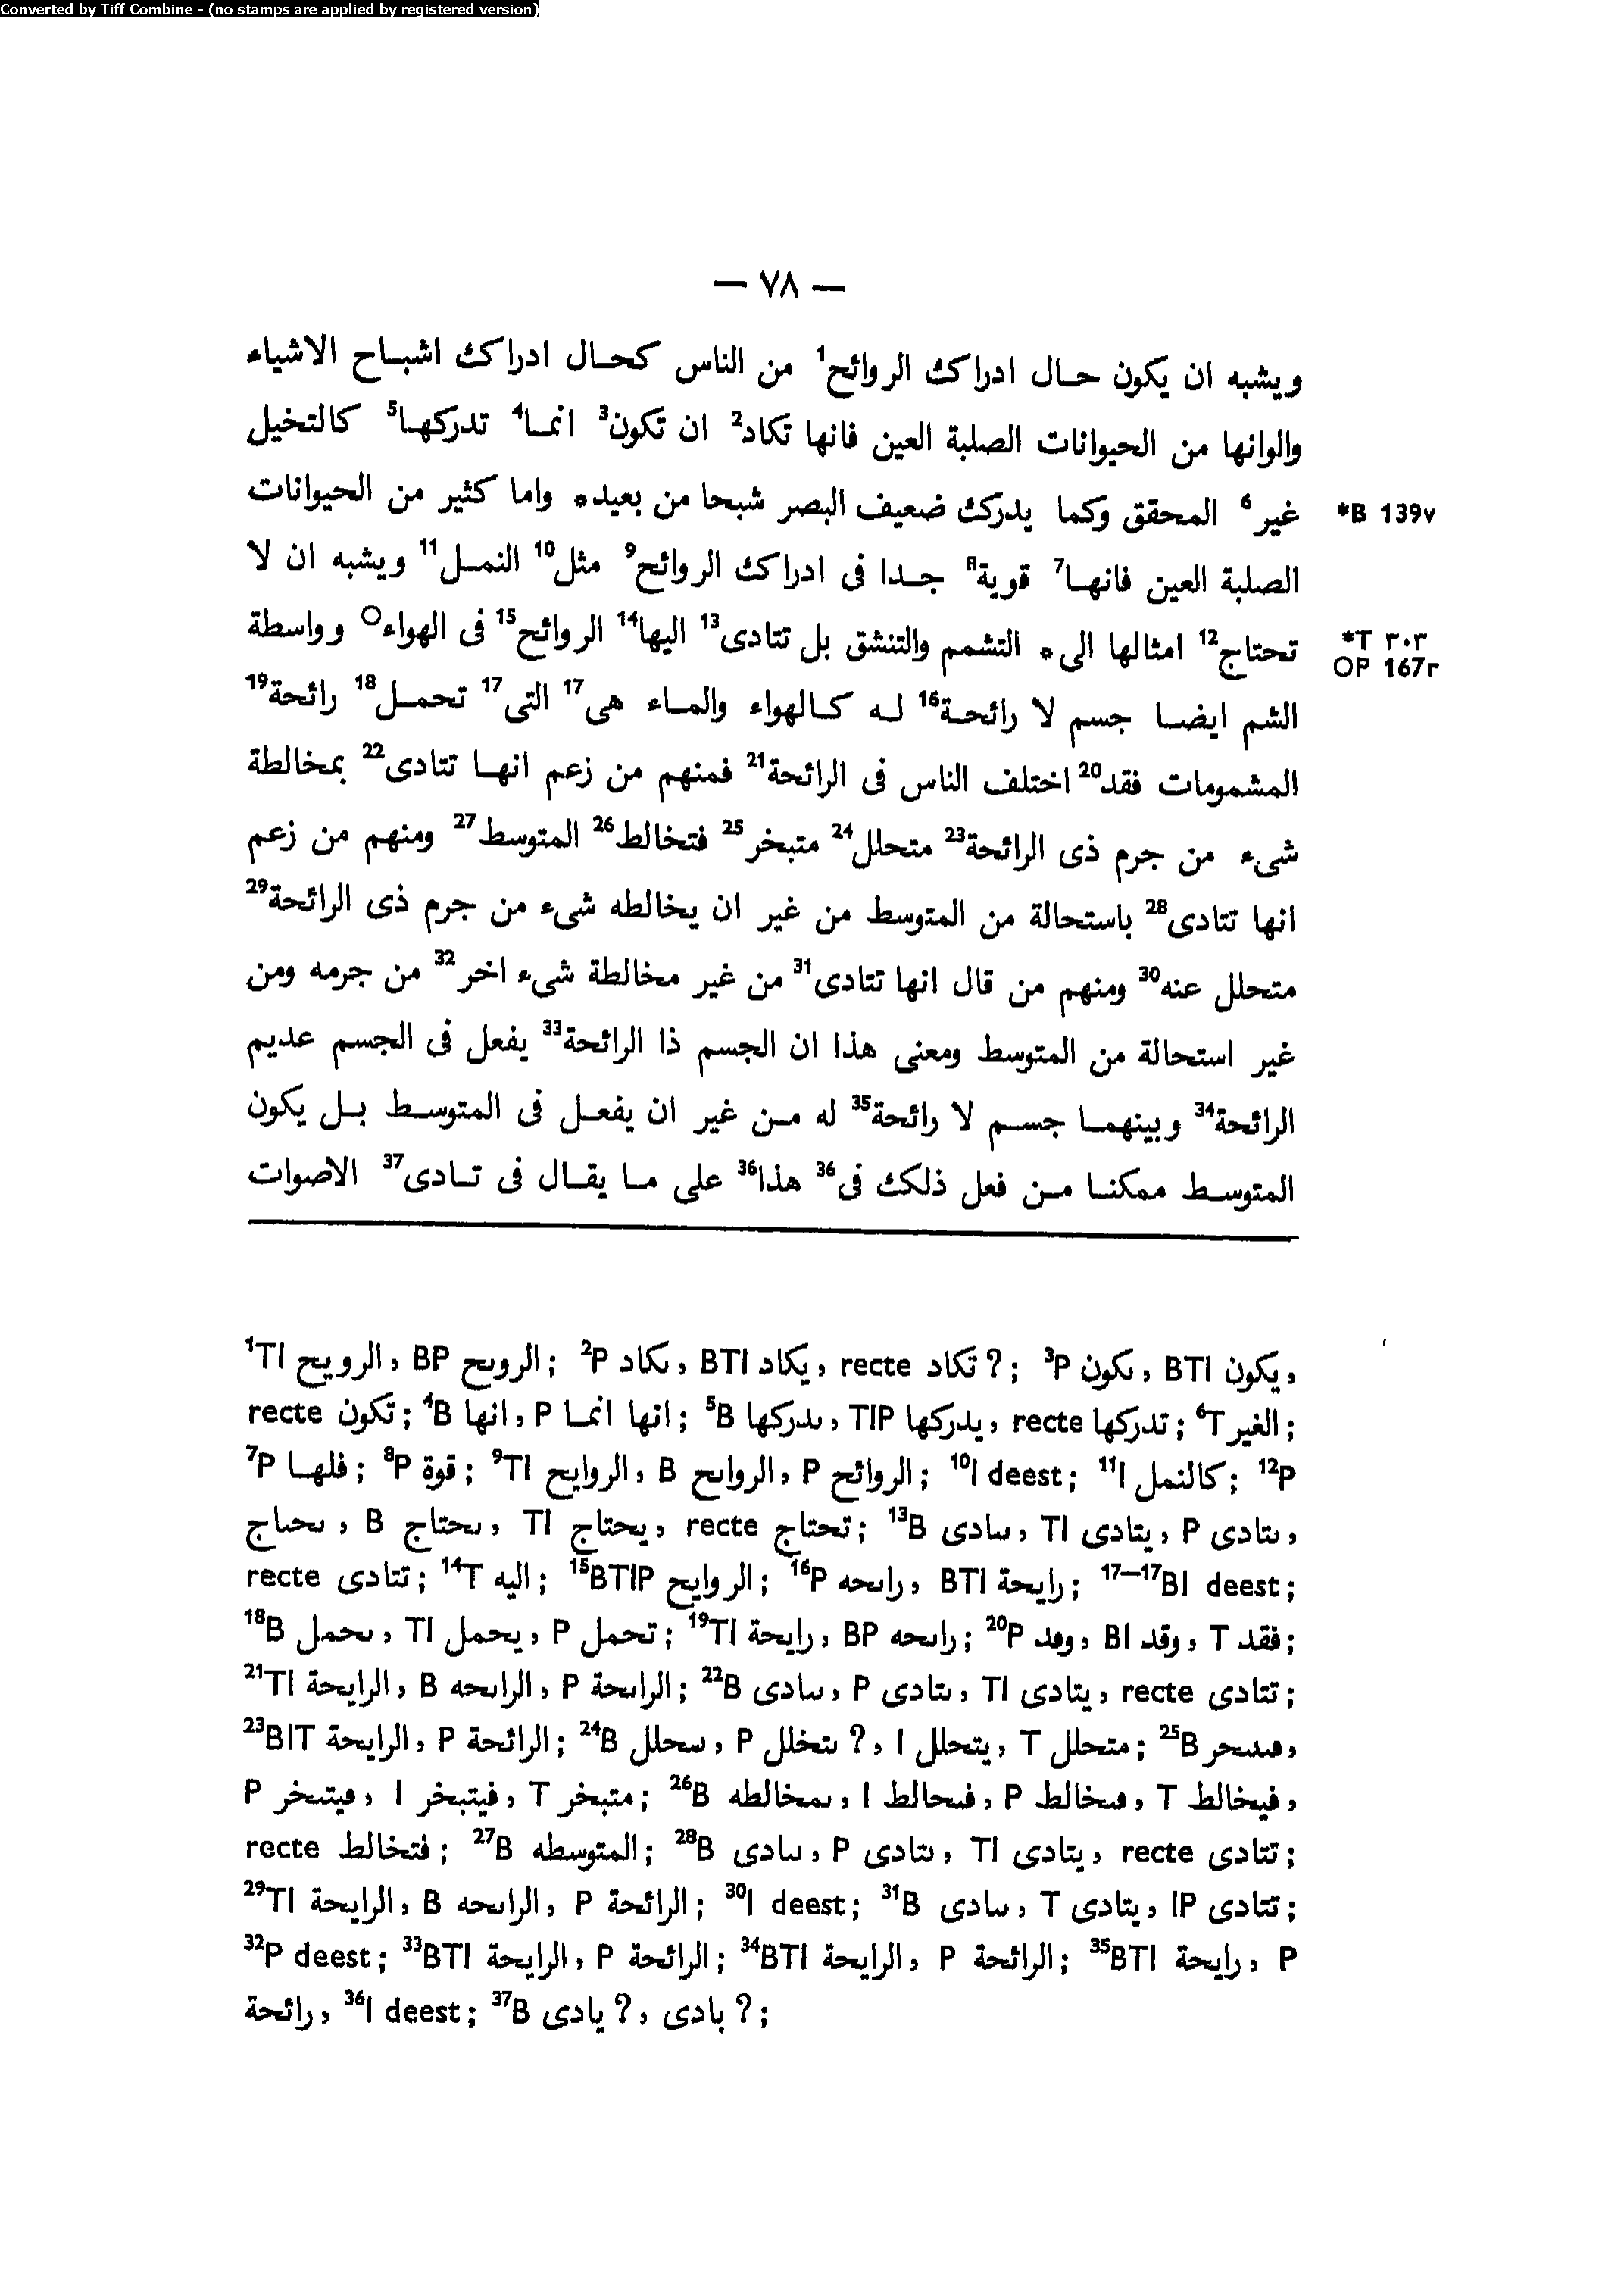 Converted by Tiff Combine - (no stamps are applied by registered version)
— ٧٨ —
ويشبه ان يكون حـال ادراك الروائح1 من الناس كحـال ادراك اشبـاح الاشياء
والوانها من الحيوانات الصلبة العين فانها تكاد2 ان تكون3 انمـا4 تدركهـا5 كالتخيل
غير6 المحقق وكما يدرك ضعيف البصر شبحا من بعيد* واما كثير من الحيوانات *B 139v
الصلبة العين فانهـا7 قوية8 جـدا فى ادراك الروائح9 مثل10 النمـل11 ويشبه ان لا
تحتاج12 امثالها الى* التشمم والتنشق بل تتادى13 اليها14 الروائح15 فى الهواء○ وواسطة *T ٣٠٣
OP 167r
الشم ايضـا جسم لا رائحـة16 لـه كـالهواء والمـاء هى17 التى17 تحمـل18 رائحة19
المشمومات فقد20 اختلف الناس فى الرائحة21 فمنهم من زعم انهـا تتادى22 بمخالطة
شىء من جرم ذى الرائحة23 متحلل24 متبخر25 فتخالط26 المتوسط27 ومنهم من زعم
انها تتادى28 باستحالة من المتوسط من غير ان يخالطه شىء من جرم ذى الرائحة29
متحلل عنه30 ومنهم من قال انها تتادى31 من غير مخالطة شىء اخر32 من جرمه ومن
غير استحالة من المتوسط ومعنى هذا ان الجسم ذا الرائحة33 يفعل فى الجسم عديم
الرائحة34 وبينهمـا جسـم لا رائحة35 له مـن غير ان يفعـل فى المتوسـط بـل يكون
المتوسـط ممكنـا مـن فعل ذلك فى36 هذا36 على مـا يقـال فى تـادى37 الاصوات
1TI الرويح, BP الروىح; 2P ىكاد, BTI يكاد, recte تكاد ?; 3P ىكون, BTI يكون,
recte تكون; 4B انها, P انها انمـا; 5B ىدركها, TIP يدركها, recte تدركها; 6T الغير;
7P فلهـا; 8P قوة; 9TI الروايح, B الرواىح, P الروائح; 10I deest; 11I كالنمل; 12P
ىحىاج, B ىحتاج, TI يحتاج, recte تحتاج; 13B ىىادى, TI يتادى, P ىتادى,
recte تتادى; 14T اليه; 15BTIP الروايح; 16P راىحه, BTI رايحة; 17—17BI deest;
18B ىحمل, TI يحمل, P تحمل; 19TI رايحة, BP راىحه; 20P وفد, BI وقد, T فقد;
21TI الرايحة, B الراىحه, P الراىحة; 22B ىىادى, P ىتادى, TI يتادى, recte تتادى;
23BIT الرايحة, P الرائحة; 24B ىىحلل, P ىتخلل ?, I يتحلل, T متحلل; 25B فىىىحر,
P فيتىخر, I فيتبخر, T متبخر; 26B ىمخالطه, I فىحالط, P فىخالط, T فيخالط,
recte فتخالط; 27B المتوسطه; 28B ىىادى, P ىتادى, TI يتادى, recte تتادى;
29TI الرايحة, B الراىحه, P الرائحة; 30I deest; 31B ىىادى, T يتادى, IP تتادى;
32P deest; 33BTI الرايحة, P الرائحة; 34BTI الرايحة, P الرائحة; 35BTI رايحة, P
رائحة, 36I deest; 37B يادى ?, بادى ?;